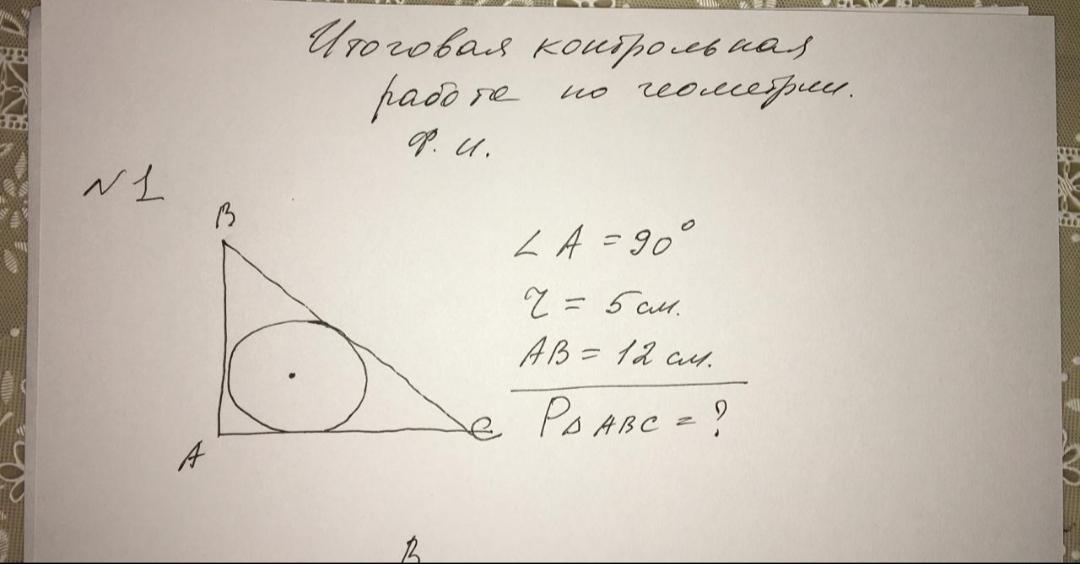 Итоговая контрольная
работа по геометрии.
Ф. И.
N1
B
∠ A = 90°
r = 5 см.
AB = 12 см.
P△ABC = ?
A
C
B